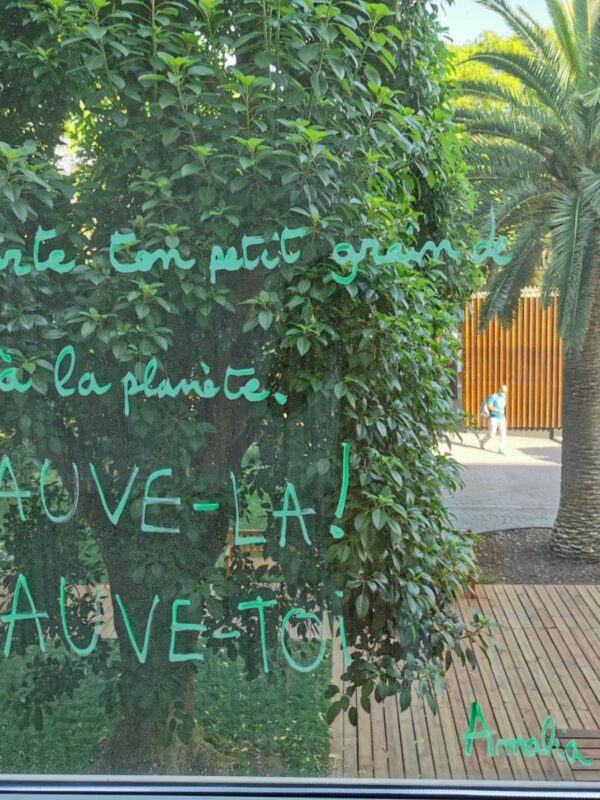 rte ton petit grain de
à la planète.
AUVE-LA!
AUVE-TOI
Armalia